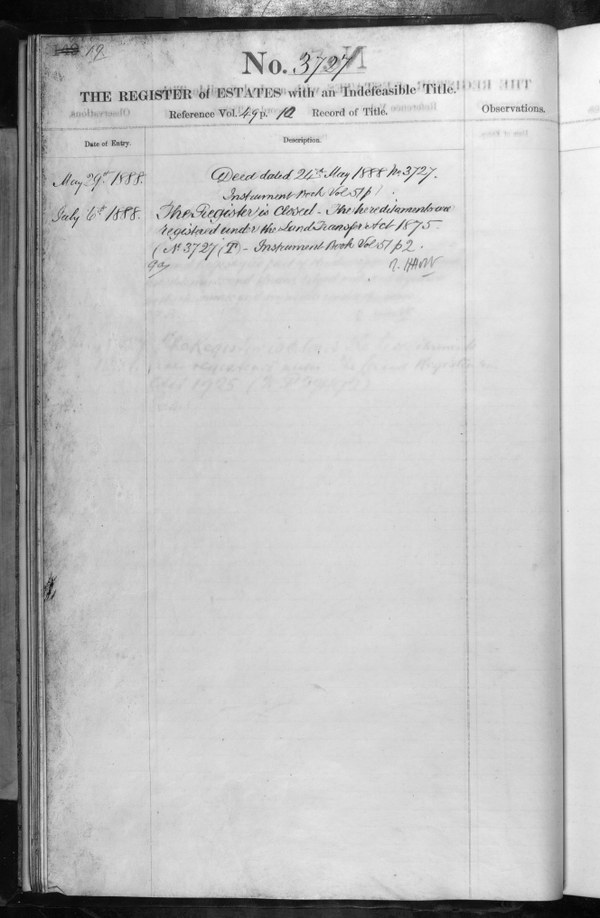 19
No. 3727
THE REGISTER of ESTATES with an Indefeasible Title.
Reference Vol. 49 p. 10 Record of Title.
Observations.
Date of Entry.
Description.
May 29th 1888. Deed dated 24th May 1888 No 3727.
Instrument Book Vol 51 p 1.
July 6th 1888. The Register is Closed - The hereditaments are
registered under the Land Transfer Act 1875.
(No 3727 (T) - Instrument Book Vol 51 p 2.